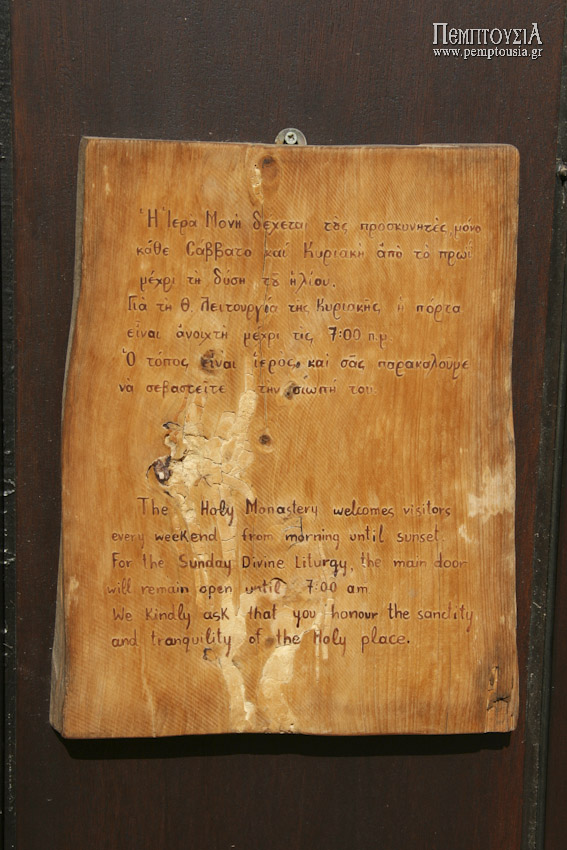 ΠΕΜΠΤΟΥΣΙΑ
www.pemptousia.gr
Ἡ Ἱερα Μονὴ δέχεται τοὺς προσκυνητές, μόνο
κάθε Σάββατο καί Κυριακή ἀπὸ τὸ πρωΐ
μέχρι τὴ δύση τοῦ ἡλίου.
Γιὰ τὴ Θ. Λειτουργία τῆς Κυριακῆς ἡ πόρτα
εἶναι ἀνοιχτὴ μέχρι τὶς 7:00 π.μ
Ὁ τόπος εἶναι ἱερος, καὶ σᾶς παρακαλοῦμε
νὰ σεβαστεῖτε τὴν σιωπή του.
The Holy Monastery welcomes visitors
every weekend from morning until sunset.
For the Sunday Divine Liturgy, the main door
will remain open until 7:00 am
We kindly ask that you honour the sanctity
and tranquility of the Holy place.